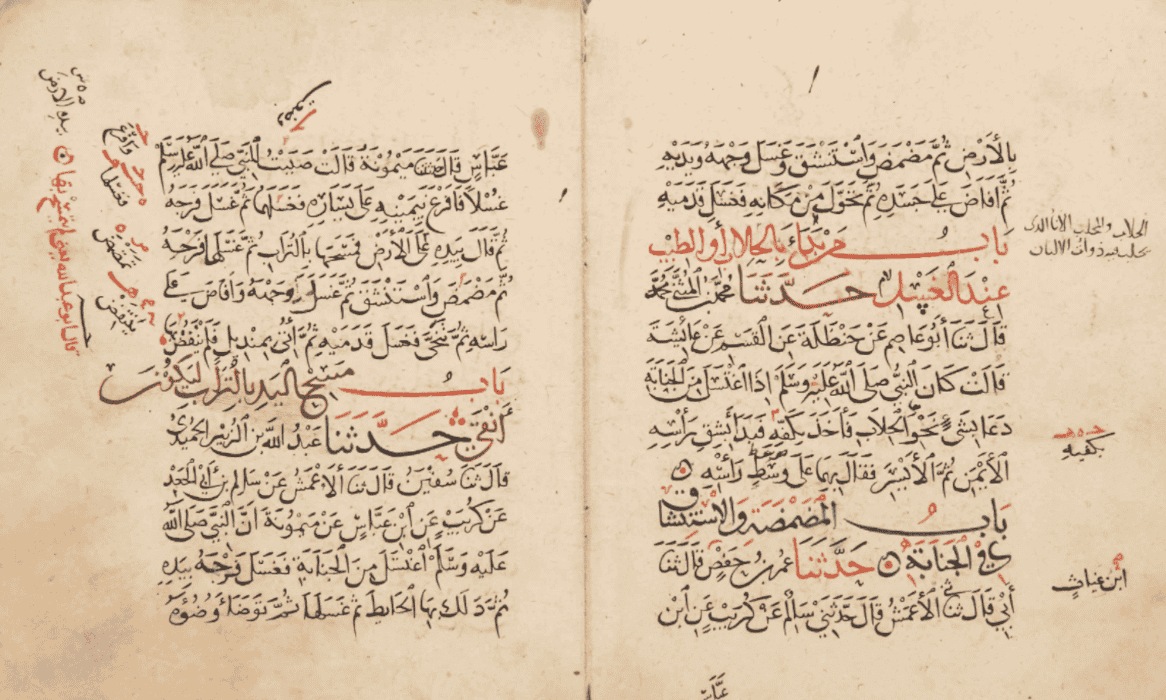 بالأرض ثم مضمض واستنشق وغسل وجهه ويديه
ثم أفاض على جسده ثم تحول من مكانه فغسل قدميه
باب من بدأ بالحلاب أو الطيب
عند الغسل حدثنا محمد بن المثنى
قال ثنا أبو عاصم عن حنظلة عن القسم عن عائشة
قالت كان النبي صلى الله عليه وسلم اذا اغتسل من الجنابة
دعا بشئ نحو الحلاب فأخذ بكفه فبدأ بشق رأسه
الأيمن ثم الأيسر فقال بهما على وسط رأسه
باب المضمضة والاستنشاق
في الجنابة حدثنا عمر بن حفص قال ثنا
أبي قال ثنا الأعمش قال حدثني سالم عن كريب عن ابن
عباس
الحلاب والمحلب الانا الذي
يحلب فيه ذوات الالبان
بكفيه
ابن غياث
عباس قال ميمونة قالت صببت للنبي صلى الله عليه وسلم
غسلا فأفرغ بيمينه على يساره فغسلهما ثم غسل فرجه
ثم قال بيده على الأرض فمسحها بالتراب ثم غسلها
ثم مضمض واستنشق ثم غسل وجهه وأفاض على
راسه ثم تنحى فغسل قدميه ثم أتي بمنديل فلم ينفض
باب مسح اليد بالتراب ليكون
أنقى حدثنا عبد الله بن الزبير الحميدي
قال ثنا سفين قال ثنا الأعمش عن سالم بن أبي الجعد
عن كريب عن ابن عباس عن ميمونة ان النبي صلى الله
عليه وسلم اغتسل من الجنابة فغسل فرجه بيده
ثم دلك بها الحايط ثم غسلها ثم توضأ وضوءه
بيده الارض
قال ابو عبد الله يعني لم يتمسح بها
وافرغ
فغسل
تمضمض